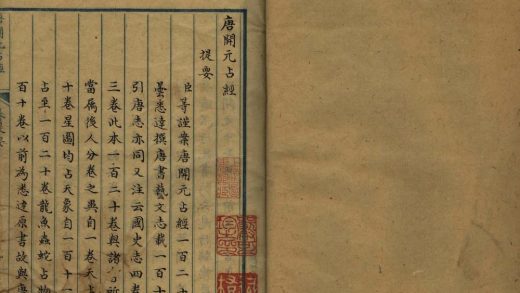 唐開元占經
提要
臣等謹案唐開元占經一百二十
曇悉達撰唐書藝文志載一百十
引唐志亦同又注云國史志四卷
三卷此本一百二十卷與諸
當屬後人分卷之異自一卷天占
十卷星圖均占天象自一百十一
占至一百二十卷龍魚蟲蛇占物
百十卷以前為悉達原書故與唐